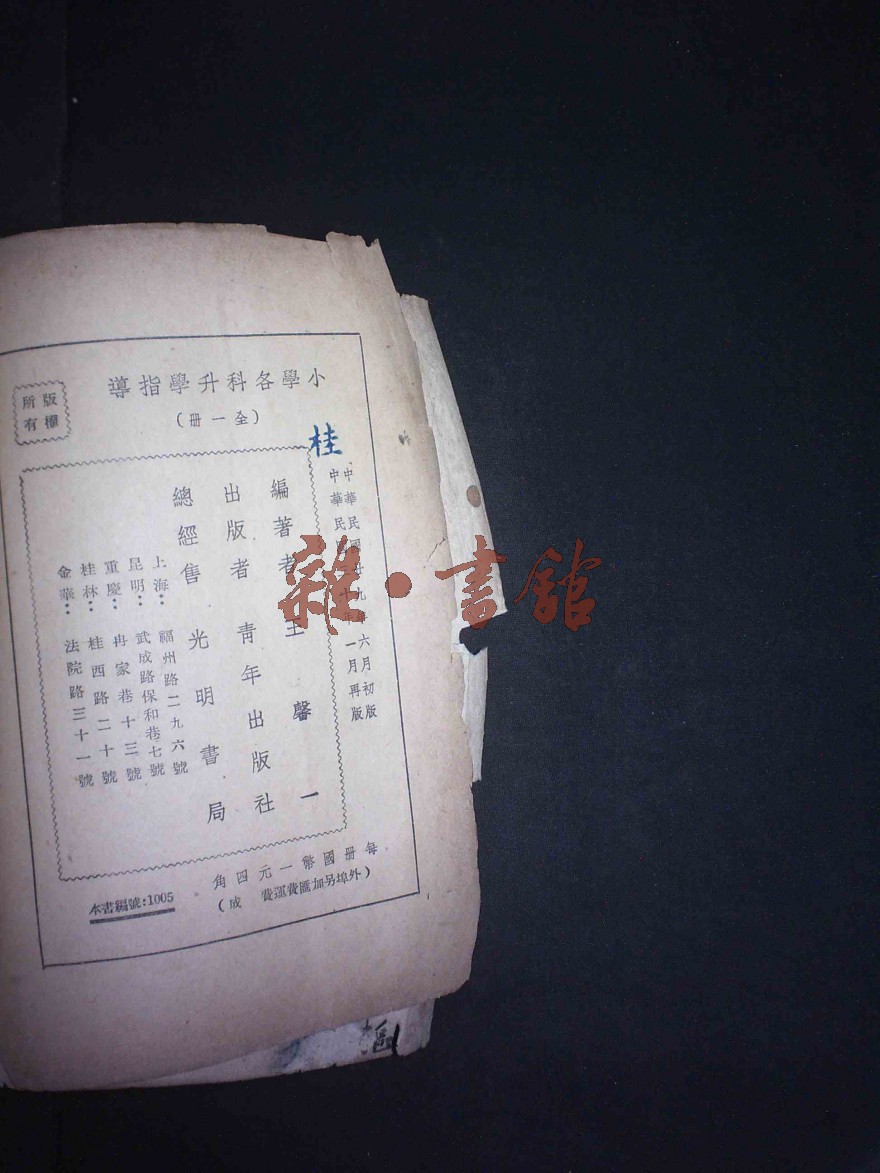 小學各科升學指導
(全一册)
版權所有
桂
中華民國廿九年六月初版
中華民國 十 一月再版
編著者 王馨一
出版者 青年出版社
總經售 光明書局
上海：福州路二九六號
昆明：武成路保和巷七號
重慶：冉家巷十三號
桂林：桂西路二十號
金華：法院路三十一號
每册國幣一元四角
(外埠另加匯費運費 成)
本書編號:1005
雜·書館